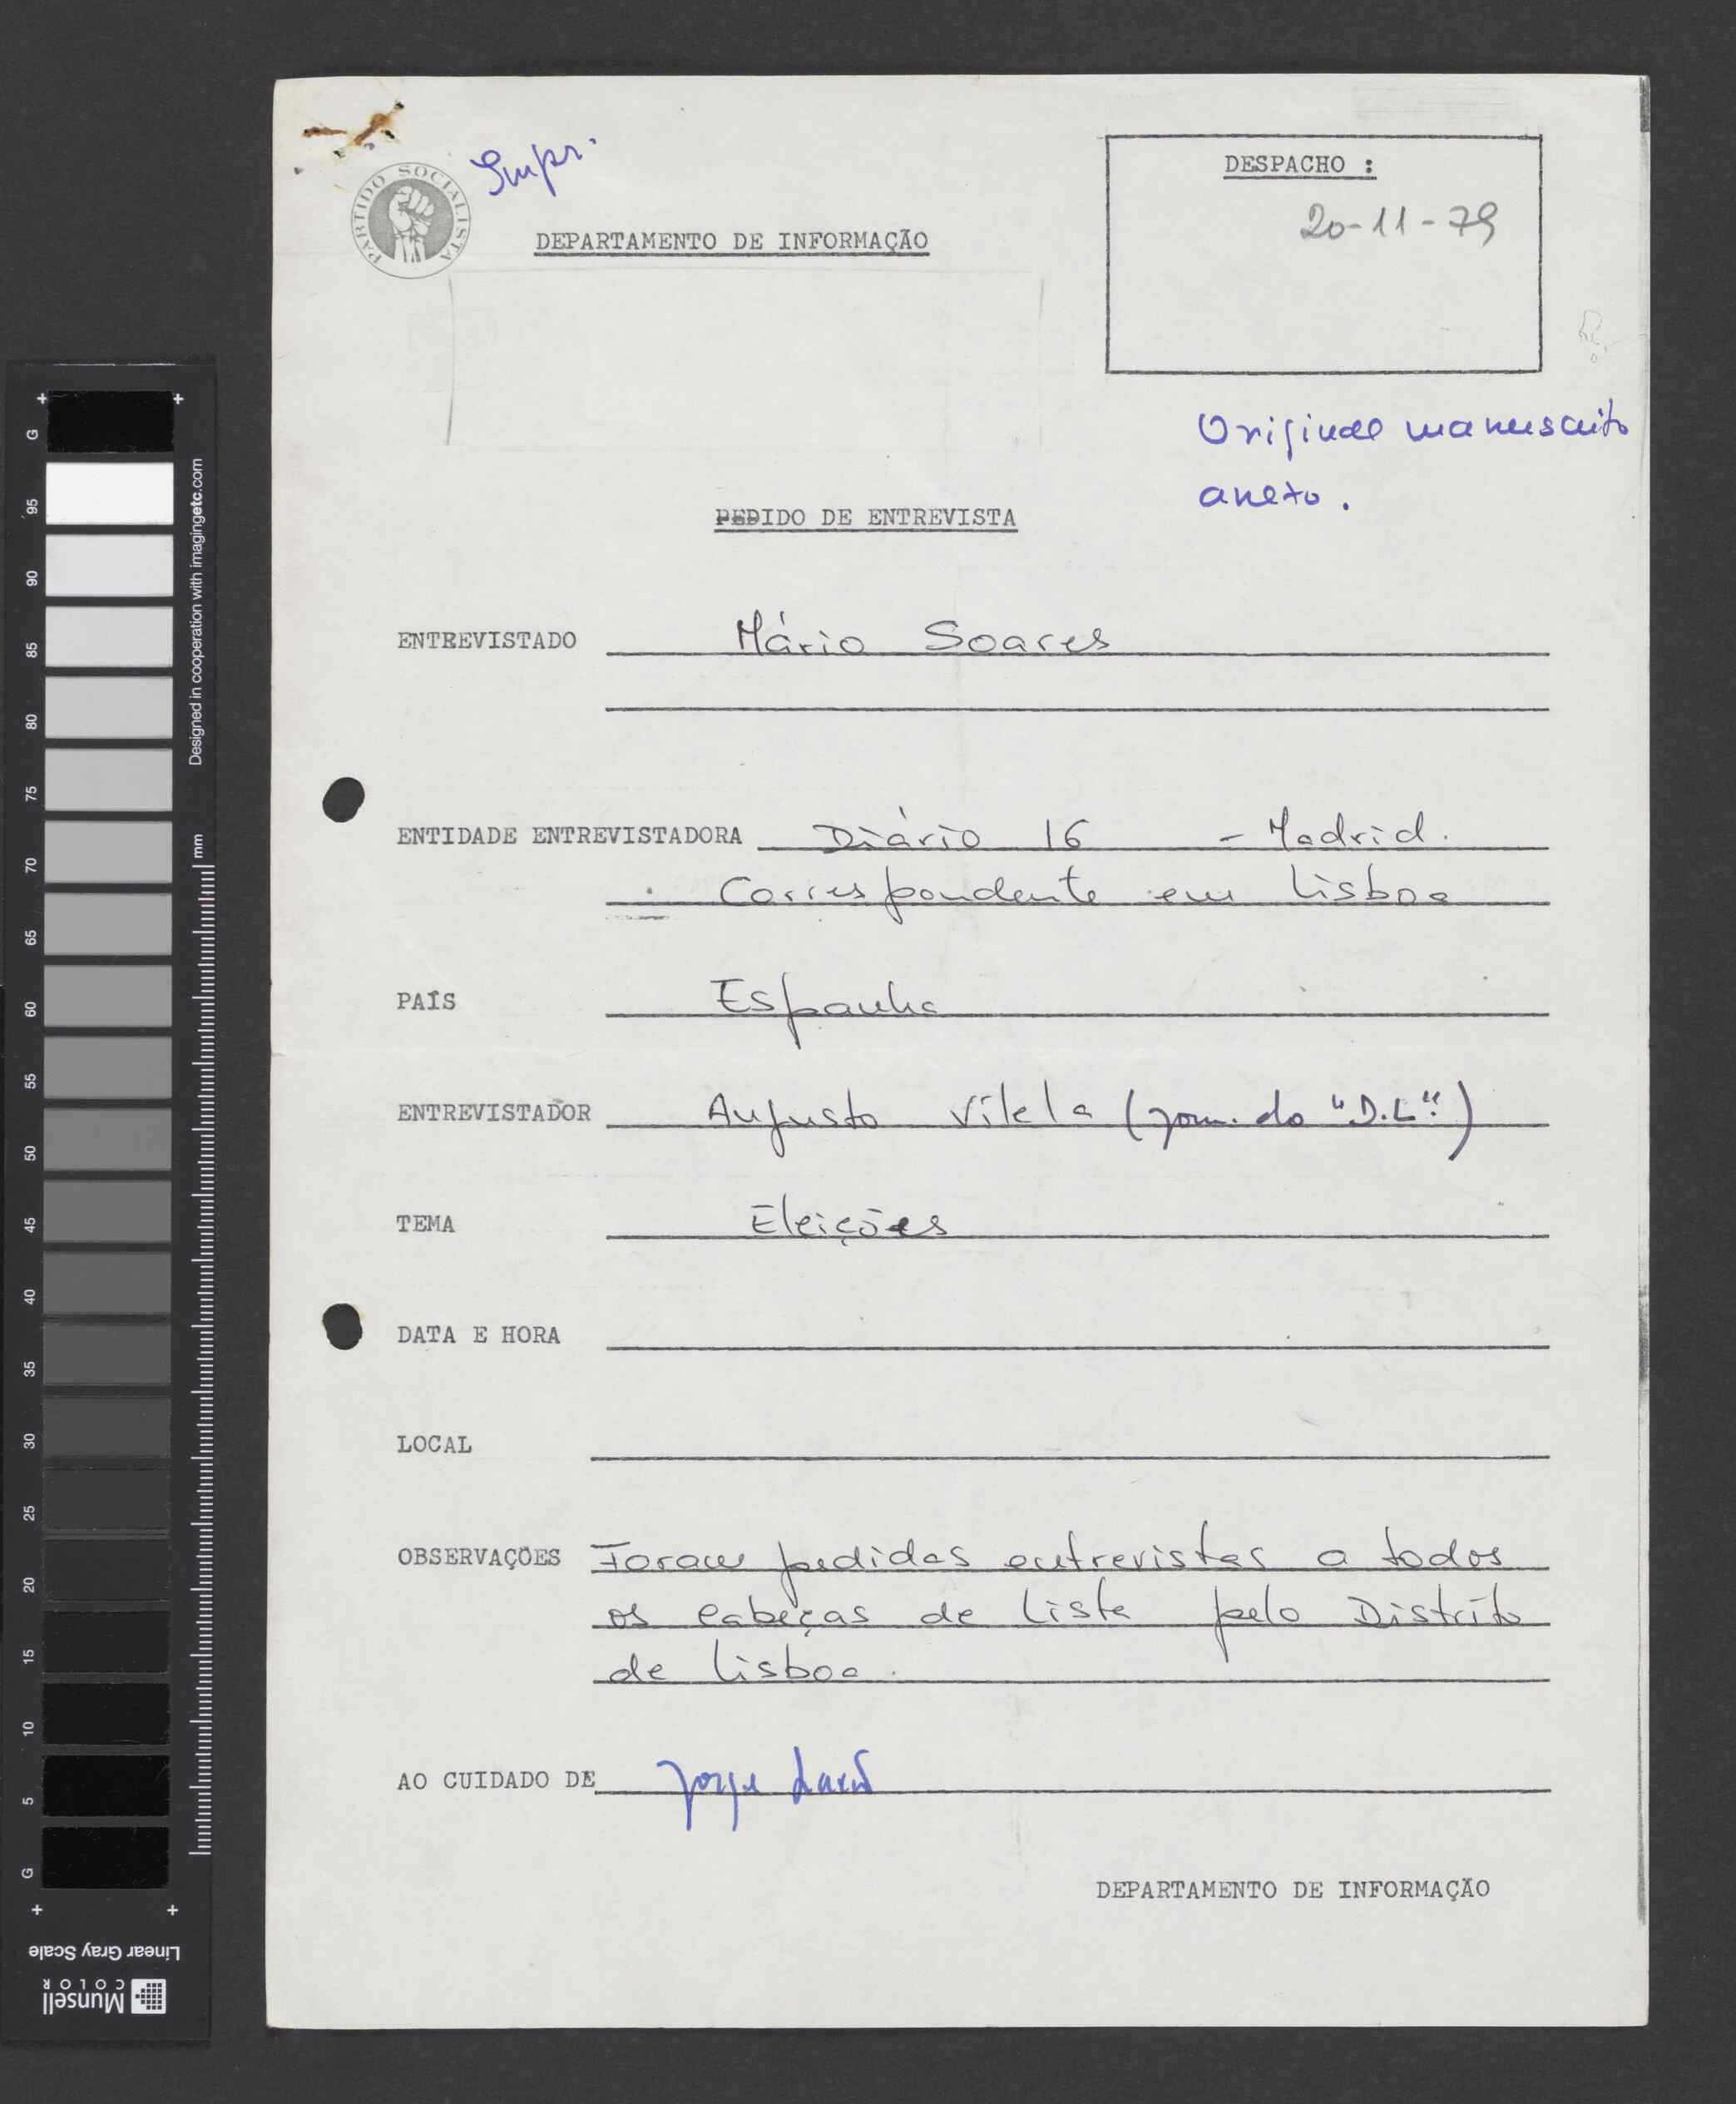 Impr.
PARTIDO SOCIALISTA
DEPARTAMENTO DE INFORMAÇÃO
DESPACHO :
20-11-79
Original manuscrito
anexo.
PEDIDO DE ENTREVISTA
ENTREVISTADO Mário Soares
ENTIDADE ENTREVISTADORA Diário 16 - Madrid.
Correspondente em Lisboa
PAÍS Espanha
ENTREVISTADOR Augusto Vilela (jorn. do "D.L.")
TEMA Eleições
DATA E HORA
LOCAL
OBSERVAÇÕES Foram pedidas entrevistas a todos
os cabeças de lista pelo Distrito
de Lisboa.
AO CUIDADO DE Jorge
DEPARTAMENTO DE INFORMAÇÃO
G 95 90 85 80 75 70 65 60 55 50 45 40 35 30 25 20 15 10 5 G
Designed in cooperation with imagingetc.com
mm
Linear Gray Scale
Munsell
COLOR